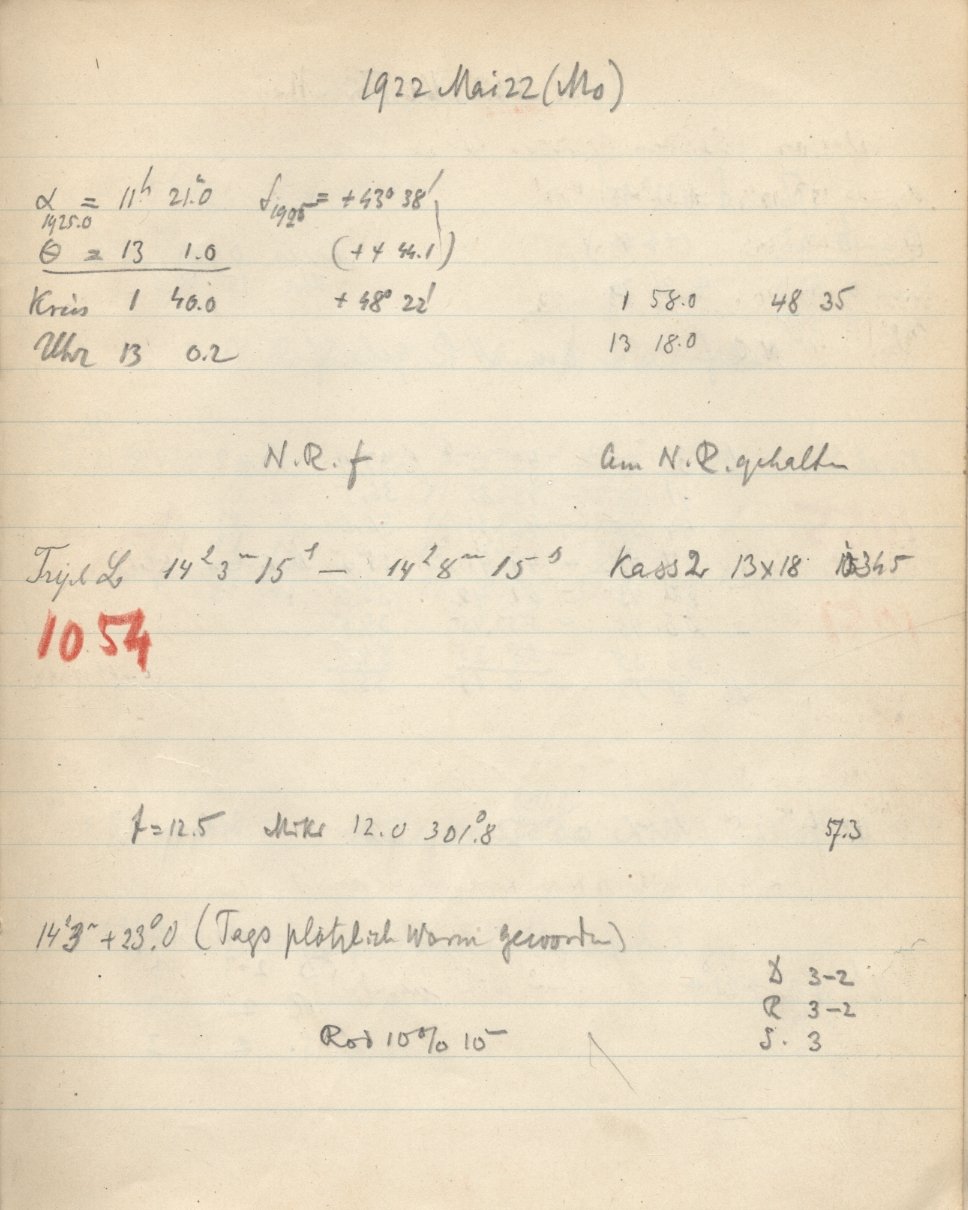 1922 Mai 22 (Mo)
α 1925.0 = 11h 21.0 δ1925 = +43° 38'
θ = 13 1.0 (+4 44.1)
Kreis 1 40.0 +48° 22' 1 58.0 48 35
Uhr 13 0.2 13 18.0
N.R. f Am N.R. gehalten
Tripl L 14h 3m 15s — 14h 8m 15s Kass 2 13x18
1054
f=12.5 Mikr 12.0 301°.8 57.3
14h 3m +23°.0 (Tags plötzlich warm geworden)
D 3-2
R 3-2
Rod 10% 10m S. 3